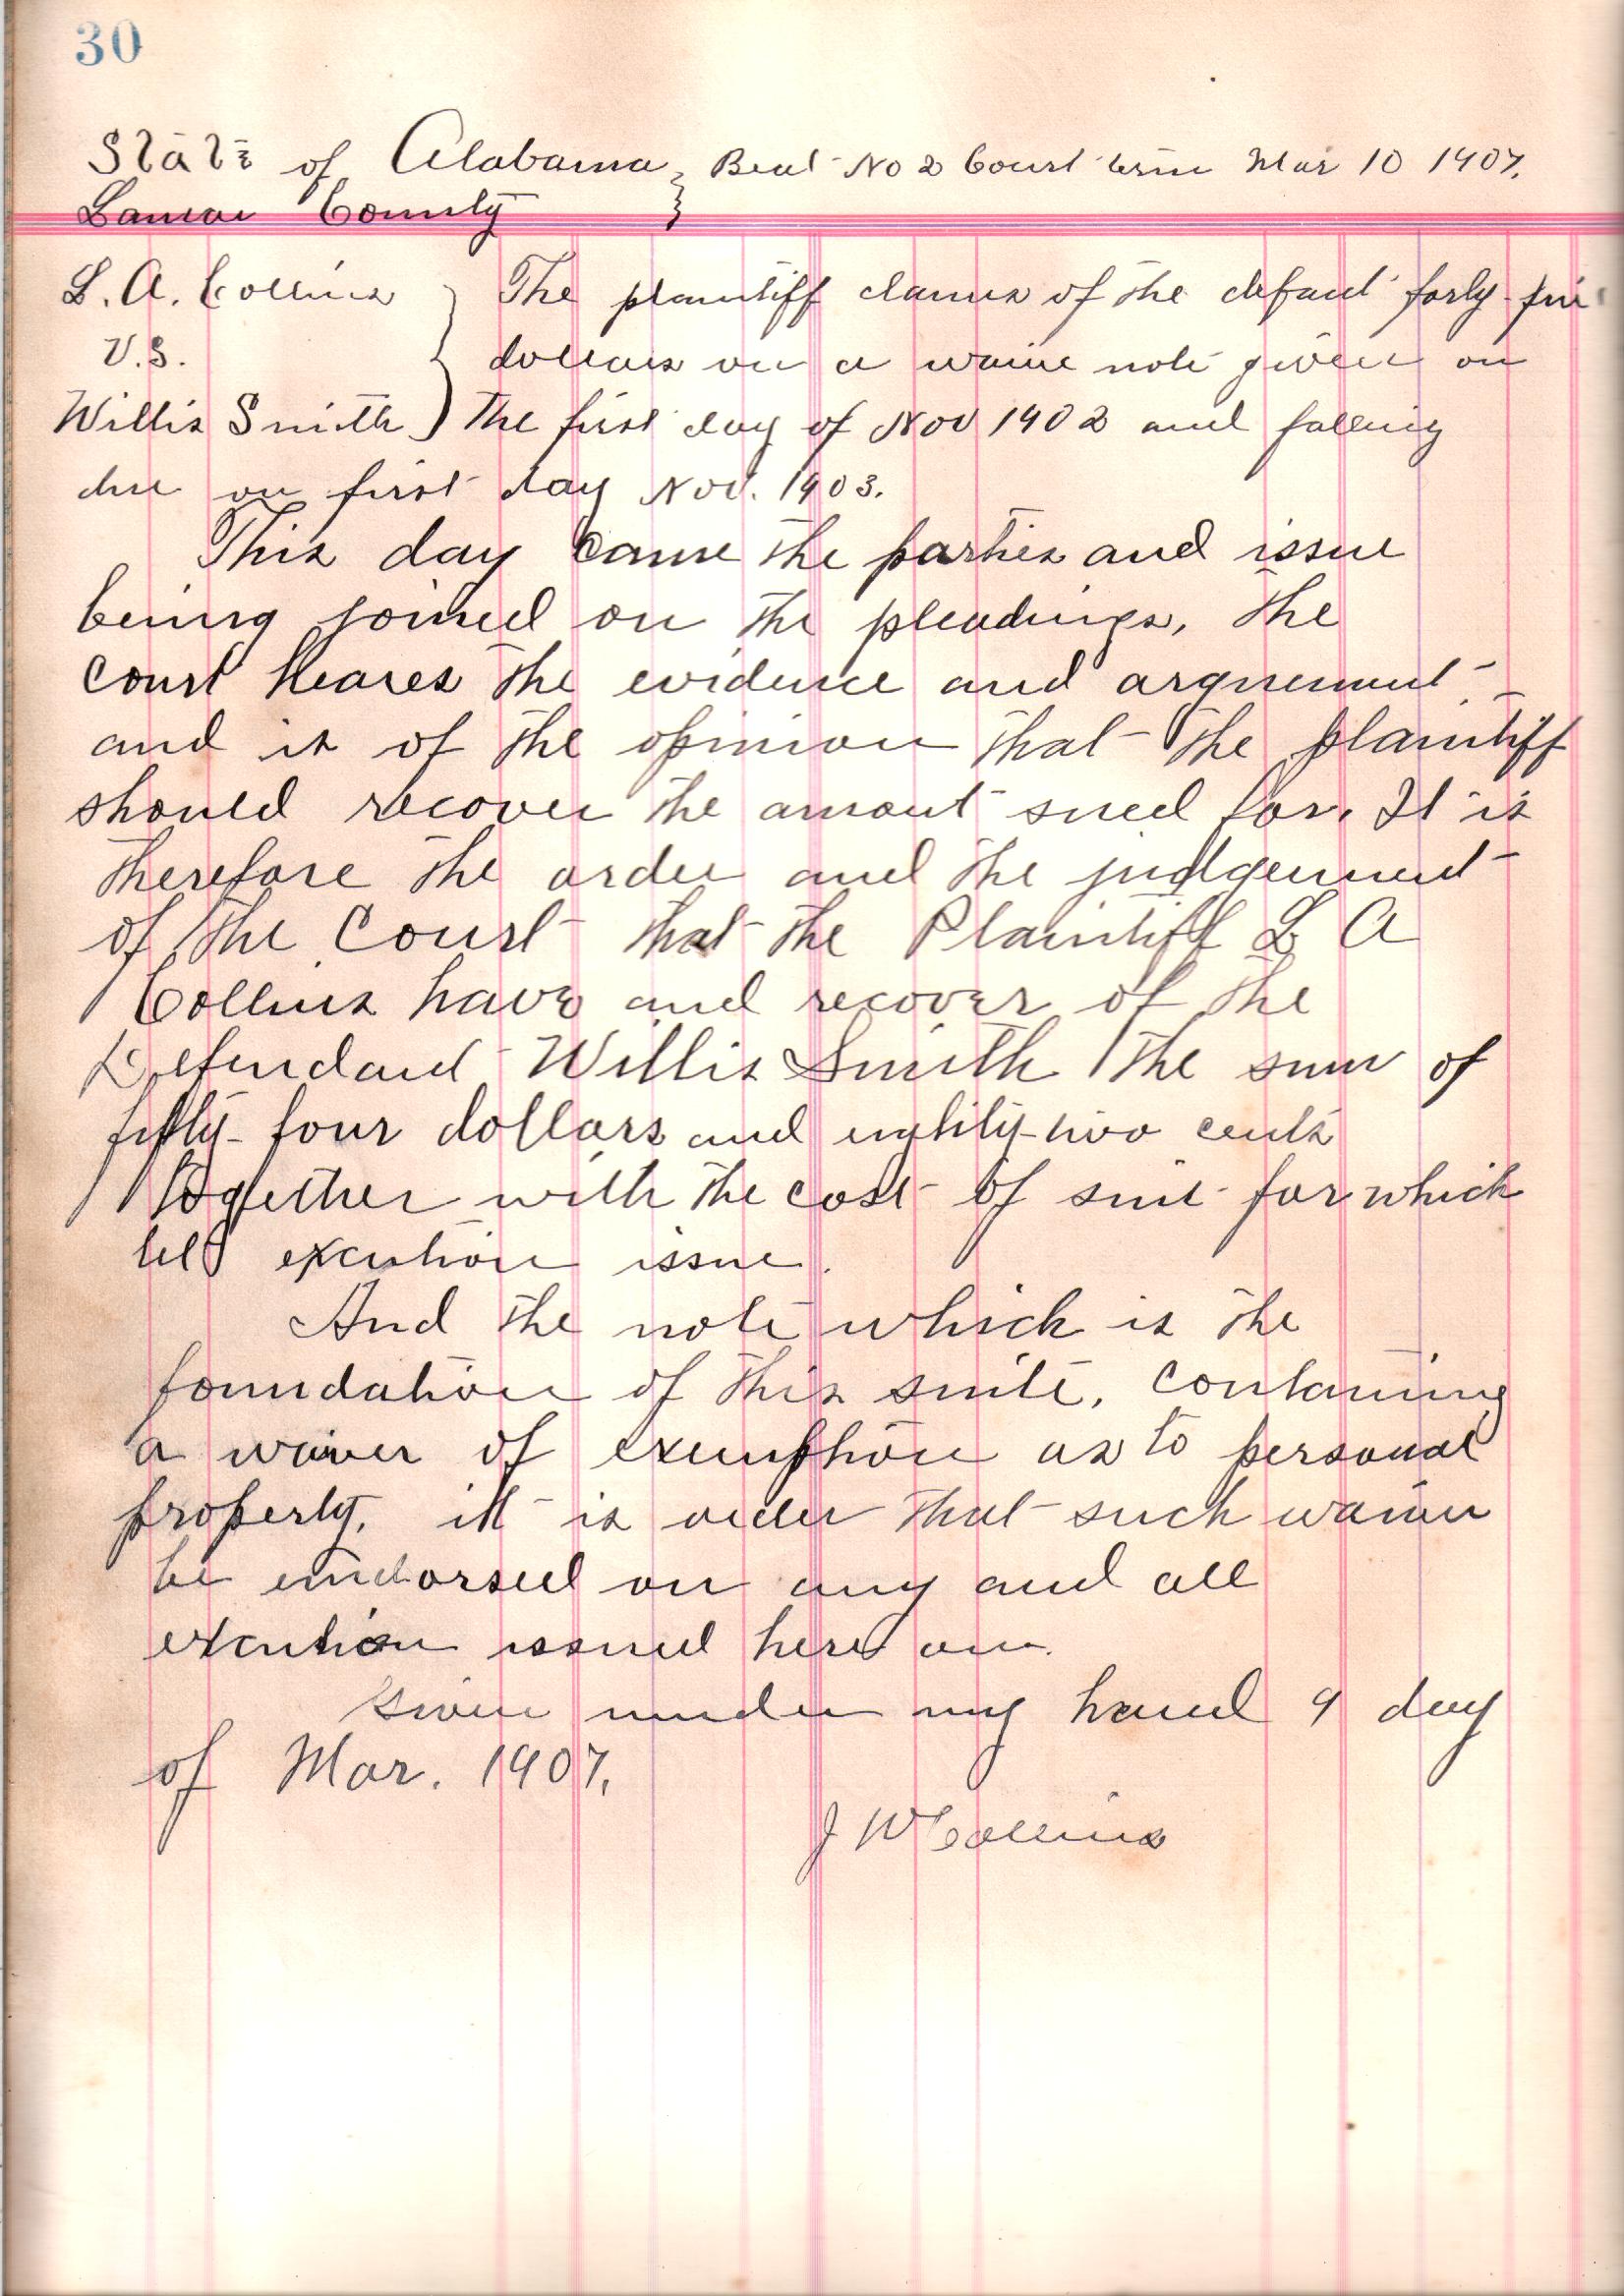 30
State of Alabama } Beat No 2 Court term Mar 10 1907.
Lamar County
L. A. Collins } The plaintiff claims of the defant forty five
V.S. dollars on a waive note given on
Willis Smith ) The first day of Nov 1902 and falling
due on first day Nov. 1903.
This day came the parties and issue
being joined on the pleadings, the
court heares the evidence and arguement
and is of the opinion that the plaintiff
should recover the amout sued for. It is
therefore the order and the judgement
of the Court that the Plaintiff L A
Collins have and recover of the
Defendant Willis Smith the sum of
fifty-four dollars and eightity-two cents
together with the cost of suit for which
let excution issue.
And the note which is the
foundation of this suite, containing
a waiver of exemption as to personal
property, it is order that such waiver
be endorsed on any and all
excution issued here on.
Given under my hand 9 day
of Mar. 1907.
J W Collins